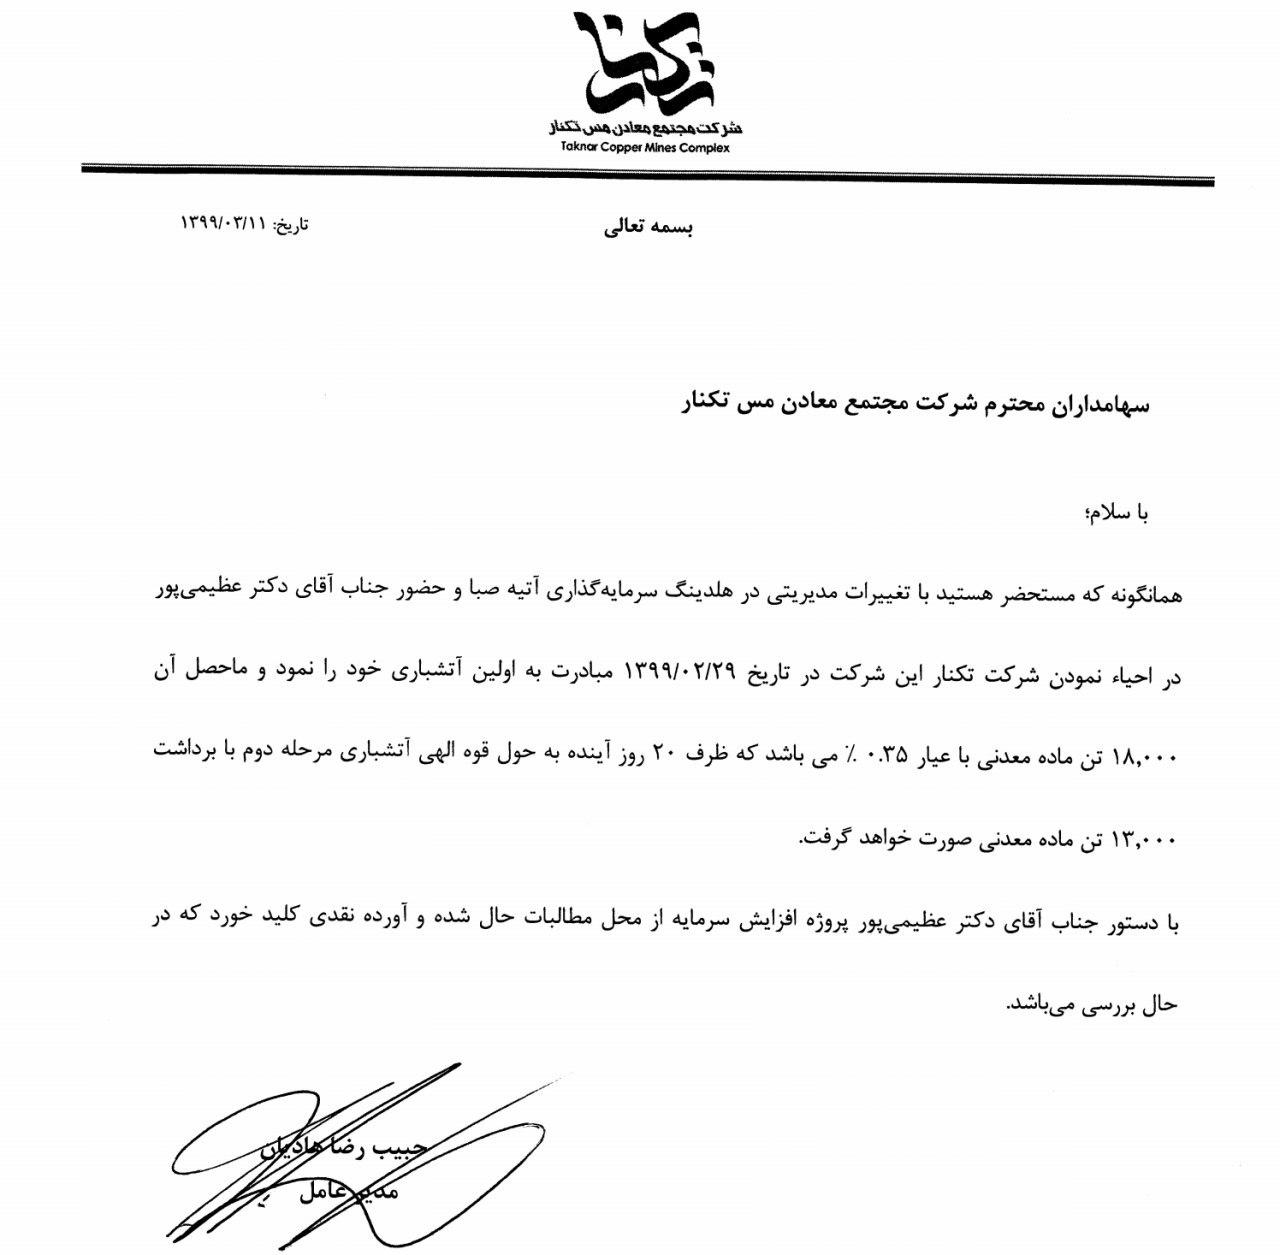 تکنار
شرکت مجتمع معادن مس تکنار
Taknar Copper Mines Complex
بسمه تعالی
تاریخ: ۱۳۹۹/۰۳/۱۱
سهامداران محترم شرکت مجتمع معادن مس تکنار
با سلام؛
همانگونه که مستحضر هستید با تغییرات مدیریتی در هلدینگ سرمایه‌گذاری آتیه صبا و حضور جناب آقای دکتر عظیمی‌پور
در احیاء نمودن شرکت تکنار این شرکت در تاریخ ۱۳۹۹/۰۲/۲۹ مبادرت به اولین آتشباری خود را نمود و ماحصل آن
۱۸,۰۰۰ تن ماده معدنی با عیار ۰.۳۵ ٪ می باشد که ظرف ۲۰ روز آینده به حول قوه الهی آتشباری مرحله دوم با برداشت
۱۳,۰۰۰ تن ماده معدنی صورت خواهد گرفت.
با دستور جناب آقای دکتر عظیمی‌پور پروژه افزایش سرمایه از محل مطالبات حال شده و آورده نقدی کلید خورد که در
حال بررسی می‌باشد.
حبیب رضا هادیان
مدیر عامل